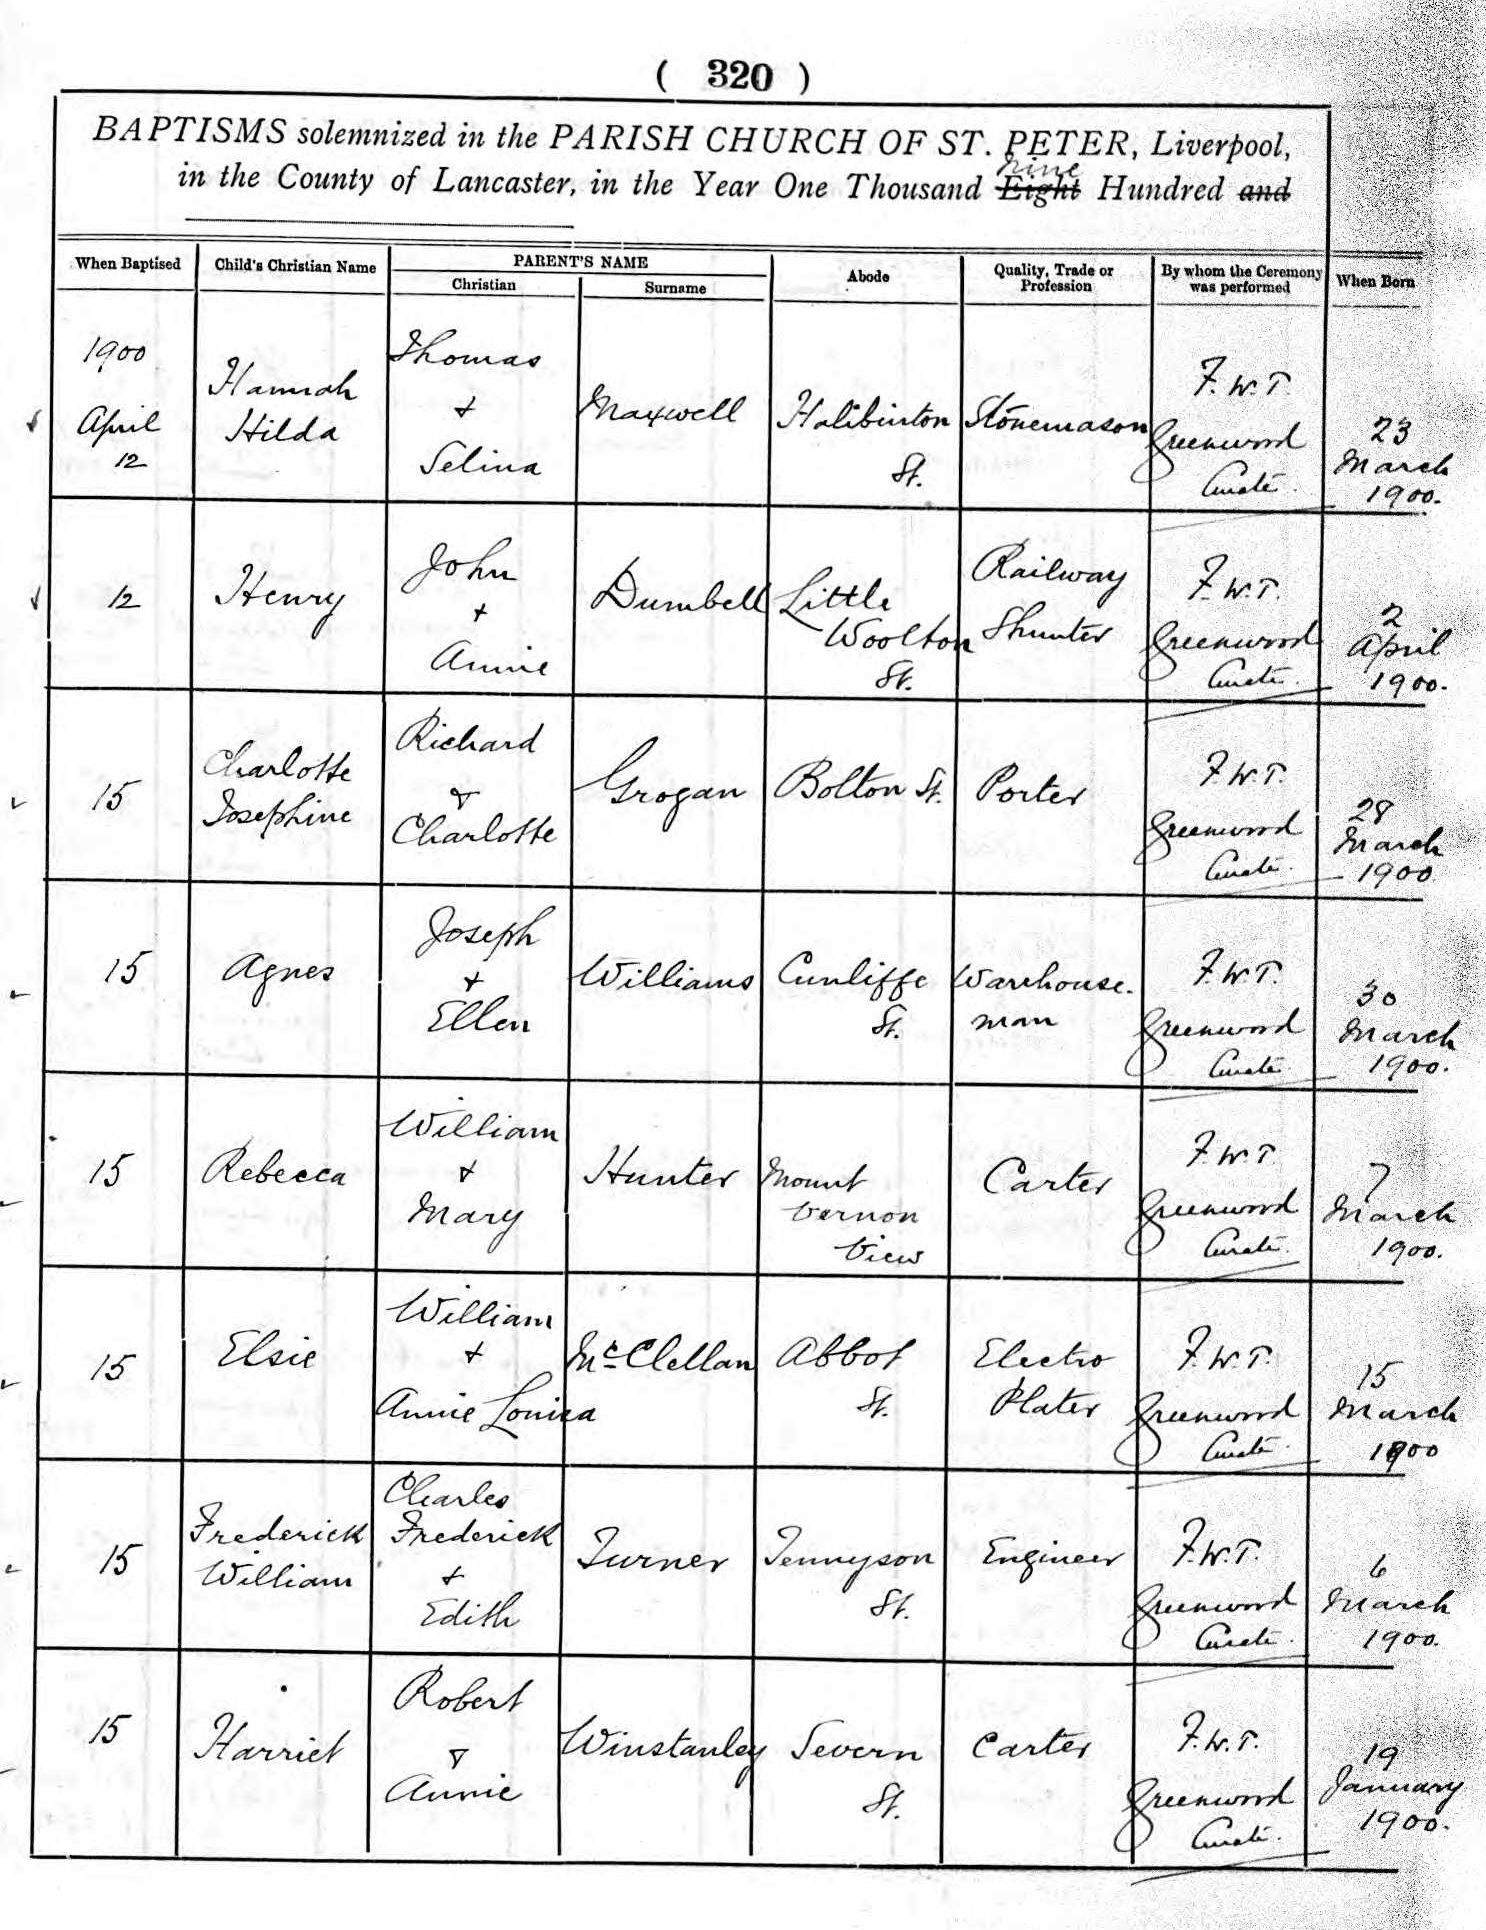 ( 320 )
BAPTISMS solemnized in the PARISH CHURCH OF ST. PETER, Liverpool,
nine
in the County of Lancaster, in the Year One Thousand Eight Hundred and
When Baptised Child's Christian Name PARENT'S NAME Christian Surname Abode Quality, Trade or Profession By whom the Ceremony was performed When Born
1900
April
12
Hannah
Hilda
Thomas
+
Selina
Maxwell
Haliburton
St.
Stonemason
F. W. T.
Greenwood
Curate.
23
March
1900.
12
Henry
John
+
Annie
Dumbell
Little
Woolton
St.
Railway
Shunter
F. W. T.
Greenwood
Curate.
2
April
1900.
15
Charlotte
Josephine
Richard
&
Charlotte
Grogan
Bolton St.
Porter
F. W. T.
Greenwood
Curate.
28
March
1900
15
Agnes
Joseph
+
Ellen
Williams
Cunliffe
St.
Warehouse-
man
F. W. T.
Greenwood
Curate.
30
March
1900.
15
Rebecca
William
+
Mary
Hunter
Mount
Vernon
View
Carter
F. W. T
Greenwood
Curate.
7
March
1900.
15
Elsie
William
+
Annie Louisa
McClellan
Abbot
St.
Electro
Plater
F. W. T.
Greenwood
Curate.
15
March
1900
15
Frederick
William
Charles
Frederick
+
Edith
Turner
Tennyson
St.
Engineer
F. W. T.
Greenwood
Curate.
6
March
1900.
15
Harriet
Robert
&
Annie
Winstanley
Severn
St.
Carter
F. W. T.
Greenwood
Curate.
19
January
1900.